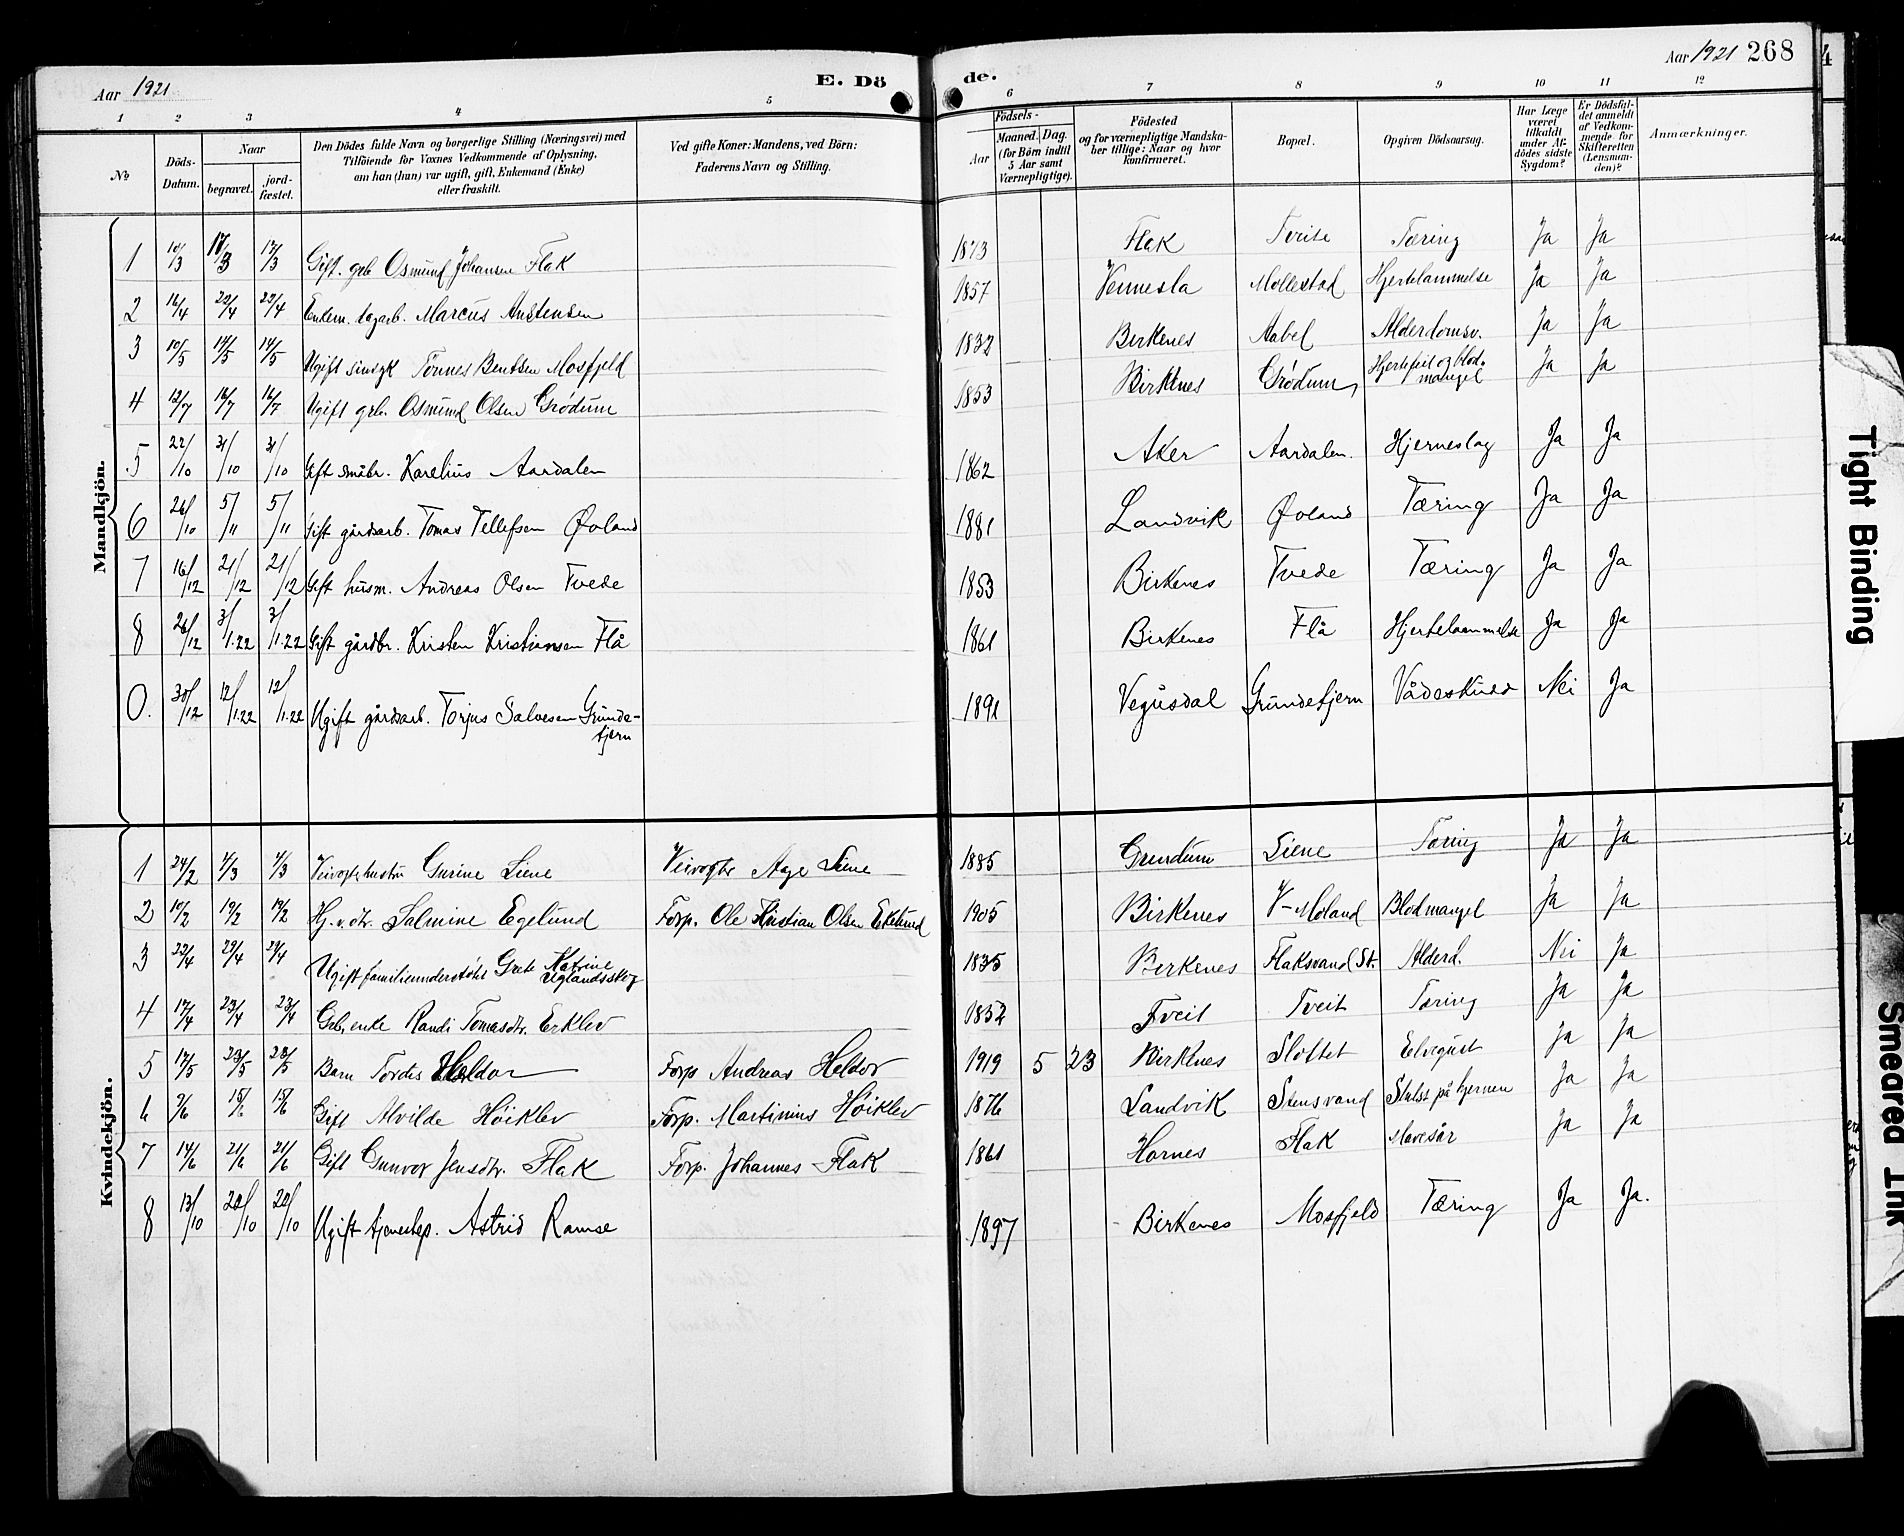 Aar 1921
E. Dö
de.
Aar 1921 268
1 2 3 4 5 6 7 8 9 10 11 12
No
Döds-Datum.
Naar
begravet.
jord-fæstet.
Den Dödes fulde Navn og borgerlige Stilling (Næringsvei) med
Tilföiende for Voxnes Vedkommende af Oplysning,
om han (hun) var ugift, gift, Enkemand (Enke)
eller fraskilt.
Ved gifte Koner: Mandens, ved Börn:
Faderens Navn og Stilling.
Födsels-
Aar
Maaned. Dag.
(for Börn indtil
5 Aar samt
Værnepligtige).
Födested
og for værnepligtige Mandska-
ber tillige: Naar og hvor
konfirmeret.
Bopæl.
Opgiven Dödsaarsag.
Har Læge
været
tilkaldt
under Af-
dödes sidste
Sygdom?
Er Dödsfal-
det anmeldt
af Vedkom-
mende for
Skifteretten
(Lensman-
den)?
Anmærkninger.
Mandkjön.
1 10/3 17/3 17/3 Gift. grb Osmund Johansen Flak 1873 Flak Tveite Tæring Ja Ja
2 16/4 29/4 29/4 Enkem. dagarb. Marcus Anstensen 1857 Vennesla Mollestad Hjertelammelse Ja Ja
3 10/5 14/5 14/5 Ugift sinsyk Tønnes Bentsen Mosfjeld 1832 Birkenes Aabel Alderdomsv. Ja Ja
4 12/7 16/7 16/7 Ugift grbr. Osmund Olsen Grødum 1853 Birkenes Grødum, Hjertefeil og blod-
mangel Ja Ja
5 22/10 31/10 31/10 Gift småbr. Karelius Aardalen 1862 Aker Aardalen. Hjerneslag Ja Ja
6 26/10 5/11 5/11 Gift gårdsarb. Tomas Tellefsen Øvland 1881 Landvik Øvland Tæring Ja Ja
7 16/12 21/12 21/12 Gift husm. Andreas Olsen Tvede 1853 Birkenes Tvede Tæring Ja Ja
8 26/12 3/1.22 3/1.22 Gift gårdbr. Kristen Kristiansen Flå 1861 Birkenes Flå Hjertelammelse Ja Ja
0. 30/12 12/1.22 12/1.22 Ugift gårdsarb. Torjus Salvesen Grunde-
tjern 1891 Vegusdal Grundetjern Vådeskudd Nei Ja
Kvindekjön.
1 24/2 4/3 4/3 Veivogterhustru Gurine Liene Veivogter Aage Liene 1885 Grundum Liene Tæring Ja Ja
2 10/2 19/2 19/2 Hj.v.dtr. Salmine Egelund Forp. Ole Kristian Olsen Ekelund 1905 Birkenes V-Moland Blodmangel Ja Ja
3 22/4 29/4 29/4 Ugift familieunderstøtt Grete Katrine
Uglandsskog 1835 Birkenes Flaksvand St. Alderd. Nei Ja
4 17/4 23/4 23/4 Grb. enke Randi Tomasdtr. Erklev 1852 Tveit Tveit Tæring Ja Ja
5 17/5 28/5 28/5 Barn Tordis Heldor Forp Andreas Heldor 1919 5 23 Birkenes Slottet Ja Ja
6 9/6 18/6 18/6 Gift Alvilde Høiklev Forp. Martinius Høiklev 1876 Landvik Stensvand på hjernen Ja Ja
7 14/6 21/6 21/6 Gift Gunvor Jensdtr. Flak Forp. Johannes Flak 1861 Hornes Flak Mavesår Ja Ja
8 13/10 20/10 20/10 Ugift tjenestep. Astrid Ramse 1897 Birkenes Mosfjeld Tæring Ja Ja.
Tight Binding
Smeared Ink